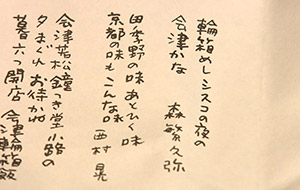 輪箱めしシスコの夜の
会津かな 森繁久弥
田季野の味あとひく味
京都の味もこんな味 西村晃
会津若松鐘つき堂小路の
夕まぐれお待かね
暮六つ開店 会津輪箱飯